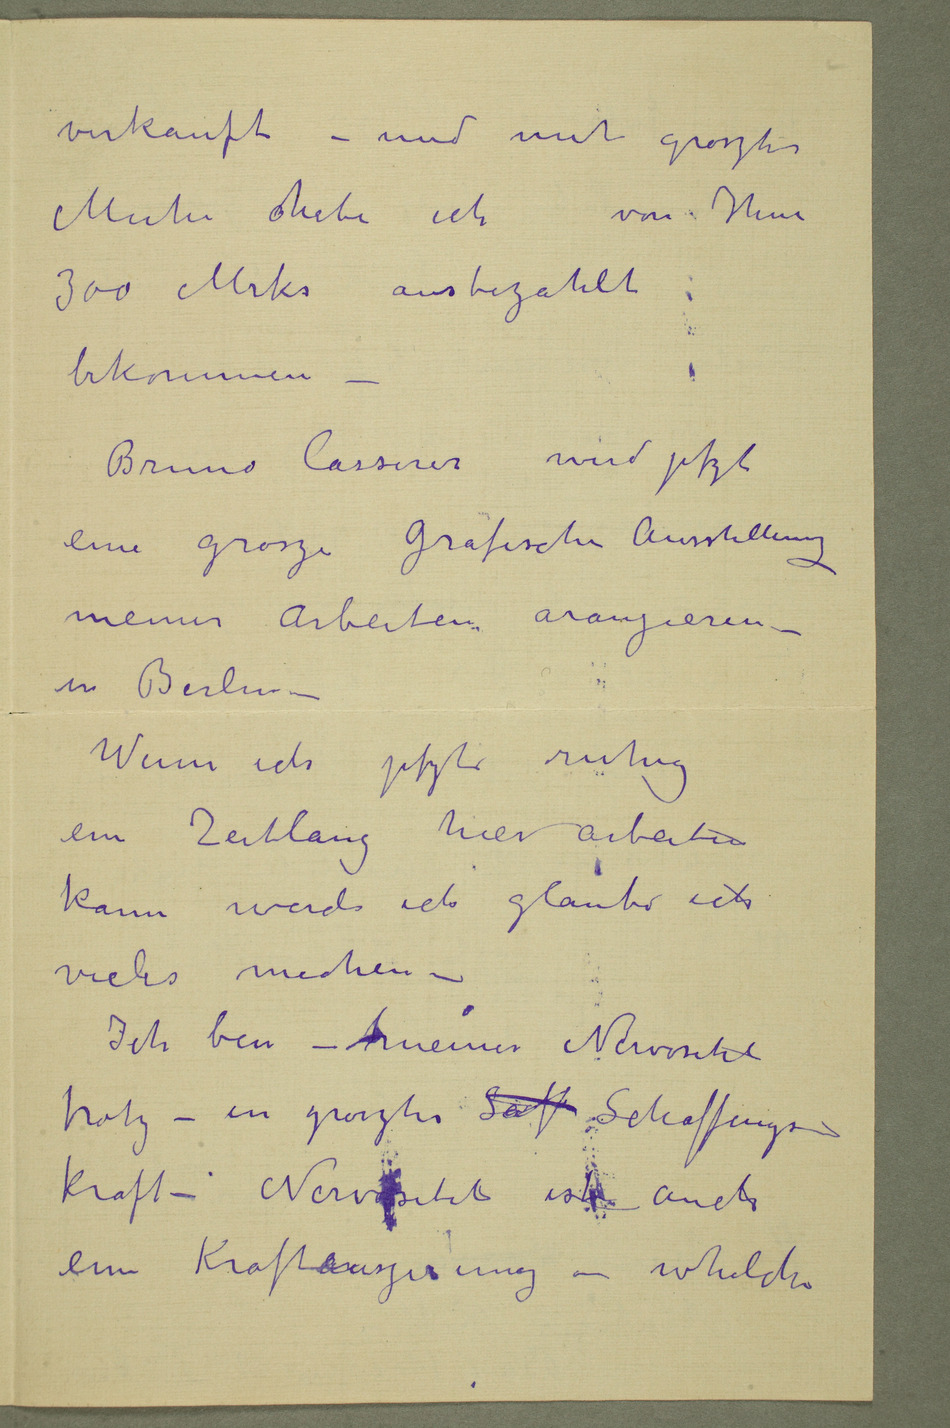 verkauft – und mit groszter
Muhe habe ich von Ihm
300 Mrks ausbezahlt
bekommen –
Bruno Casserer wird jetzt
eine grosze grafische Ausstellung
meiner Arbeiten arangieren –
in Berlin –
Wenn ich jetzt ruhig
ein Zeitlang hier arbeiten
kann werde ich glaube ich
vieles machen –
Ich bin – meiner Nervositet
trotz – in groszter Saff Schaffungs-
kraft – Nervositet ist auch
eine Kraftäuszerung – whelche